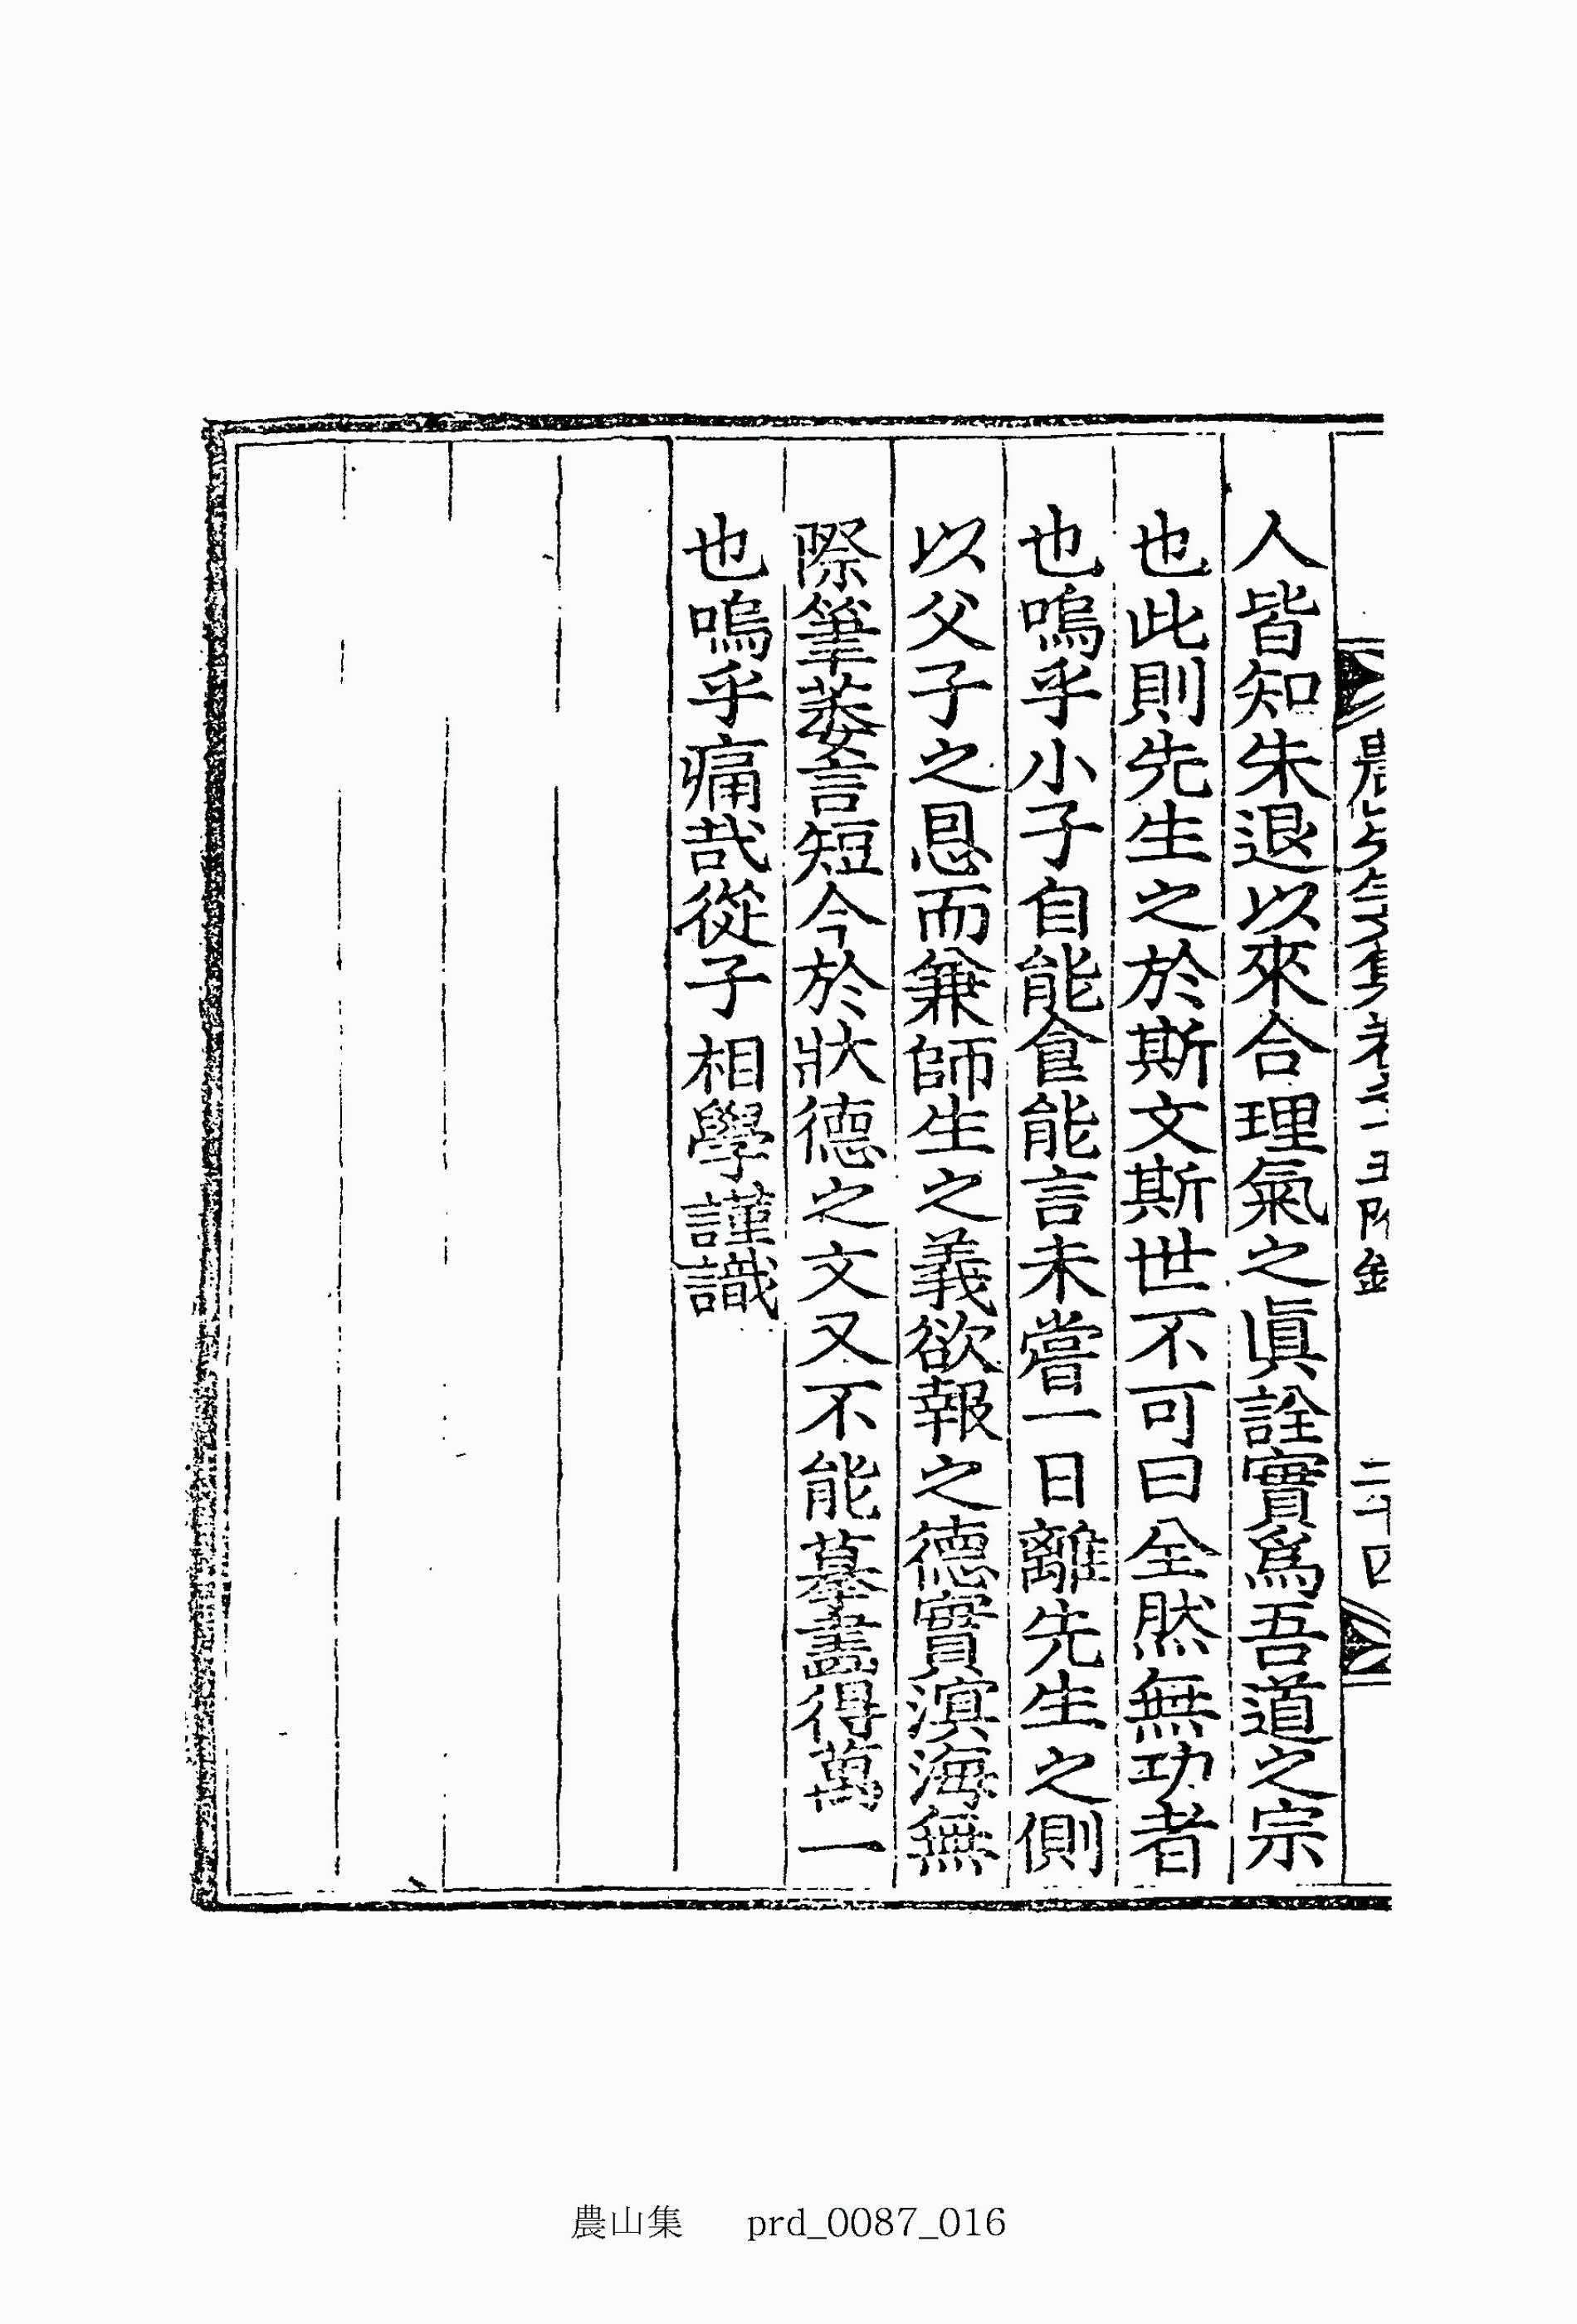 人皆知朱退以來合理氣之眞詮實爲吾道之宗
也此則先生之於斯文斯世不可曰全然無功者
也嗚乎小子自能食能言未嘗一日離先生之側
以父子之恩而兼師生之義欲報之德實溟海無
際筆萎言短今於狀德之文又不能摹畫得萬一
也嗚乎痛哉從子相學謹識
農山集 prd_0087_016